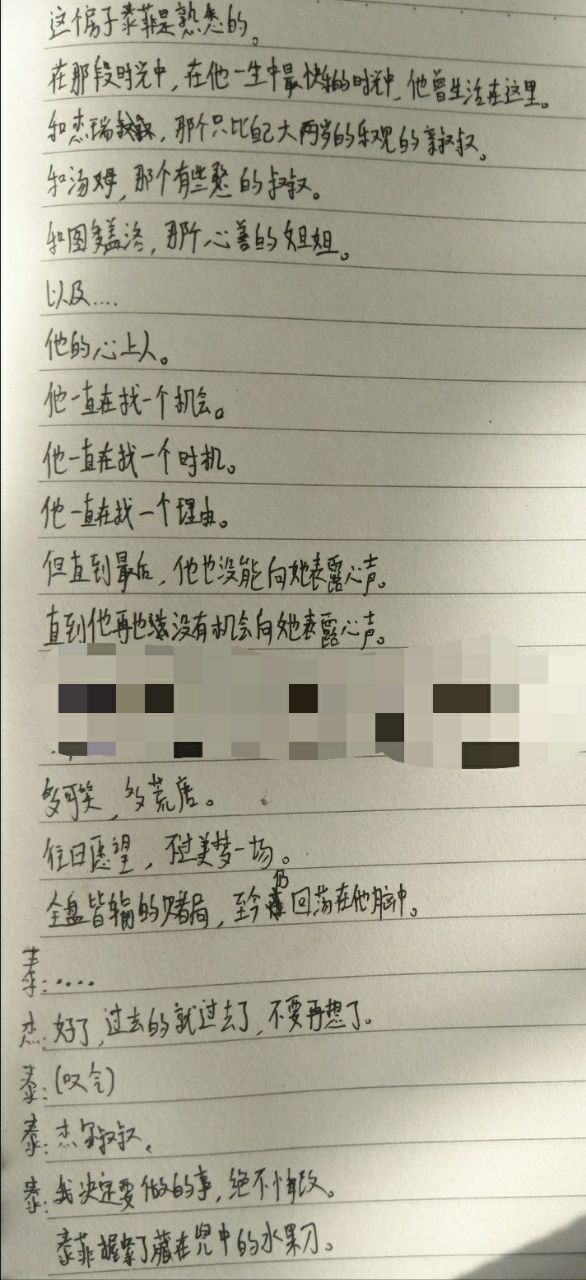 这个房子泰菲是熟悉的。
在那段时光中，在他一生中最快乐的时光中，他曾生活在这里。
和杰瑞叔叔，那个只比自己大两岁的乐观的亲叔叔。
和汤姆，那个有些憨的叔叔。
和图多盖洛，那个心善的姐姐。
以及....
他的心上人。
他一直在找一个机会。
他一直在找一个时机。
他一直在找一个理由。
但直到最后，他也没能向她表露心声。
直到他再也没有机会向她表露心声。
多可笑，多荒唐。
往日愿望，不过美梦一场。
全盘皆输的赌局，至今仍回荡在他脑中。
泰:....
杰:好了，过去的就过去了，不要再想了。
泰:(叹气)
泰:杰叔叔、
泰:我决定要做的事，绝不悔改。
泰菲握紧了藏在兜中的水果刀。